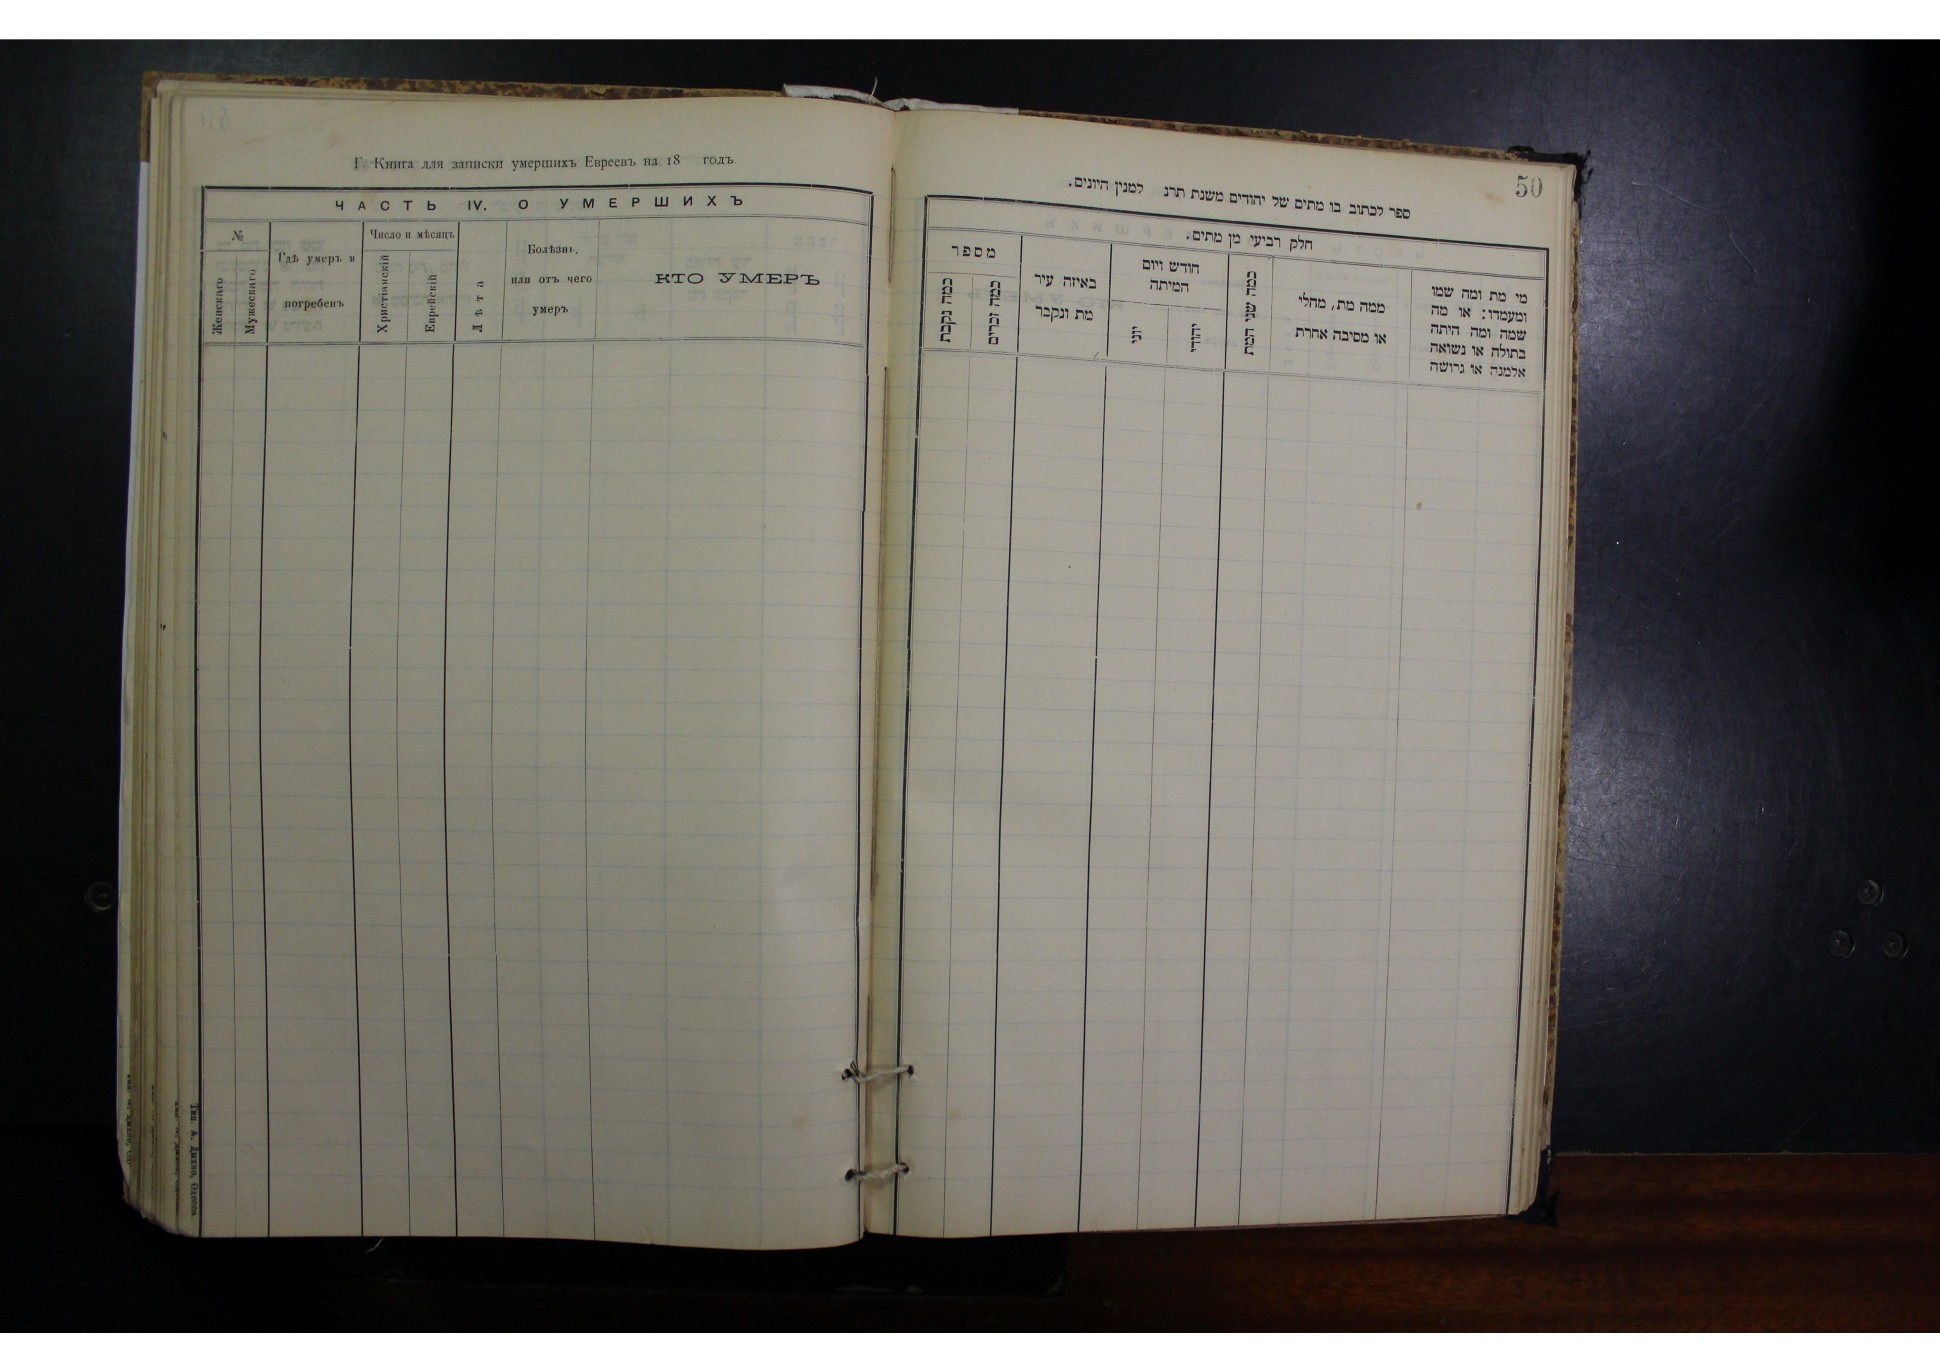 Г. Книга для записки умершихъ Евреевъ на 18 годъ
ЧАСТЬ IV. О УМЕРШИХЪ
№
Женскаго
Мужескаго
Гдѣ умеръ и
погребенъ
Число и мѣсяцъ
Христіанскій
Еврейскій
Лѣта
Болѣзнь,
или отъ чего
умеръ
КТО УМЕРЪ
Тип. А. Дыхно, Одесса
50
ספר לכתוב בו מתים של יהודים משנת תרנ למנין היונים.
חלק רביעי מן מתים.
מספר
כמה נקבת
כמה זכרים
באיזה עיר
מת ונקבר
חודש ויום
המיתה
יוני
יהודי
כמה שני המת
ממה מת, מחלי
או מסיבה אחרת
מי מת ומה שמו
ומעמדו: או מה
שמה ומה היתה
בתולה או נשואה
אלמנה או גרושה